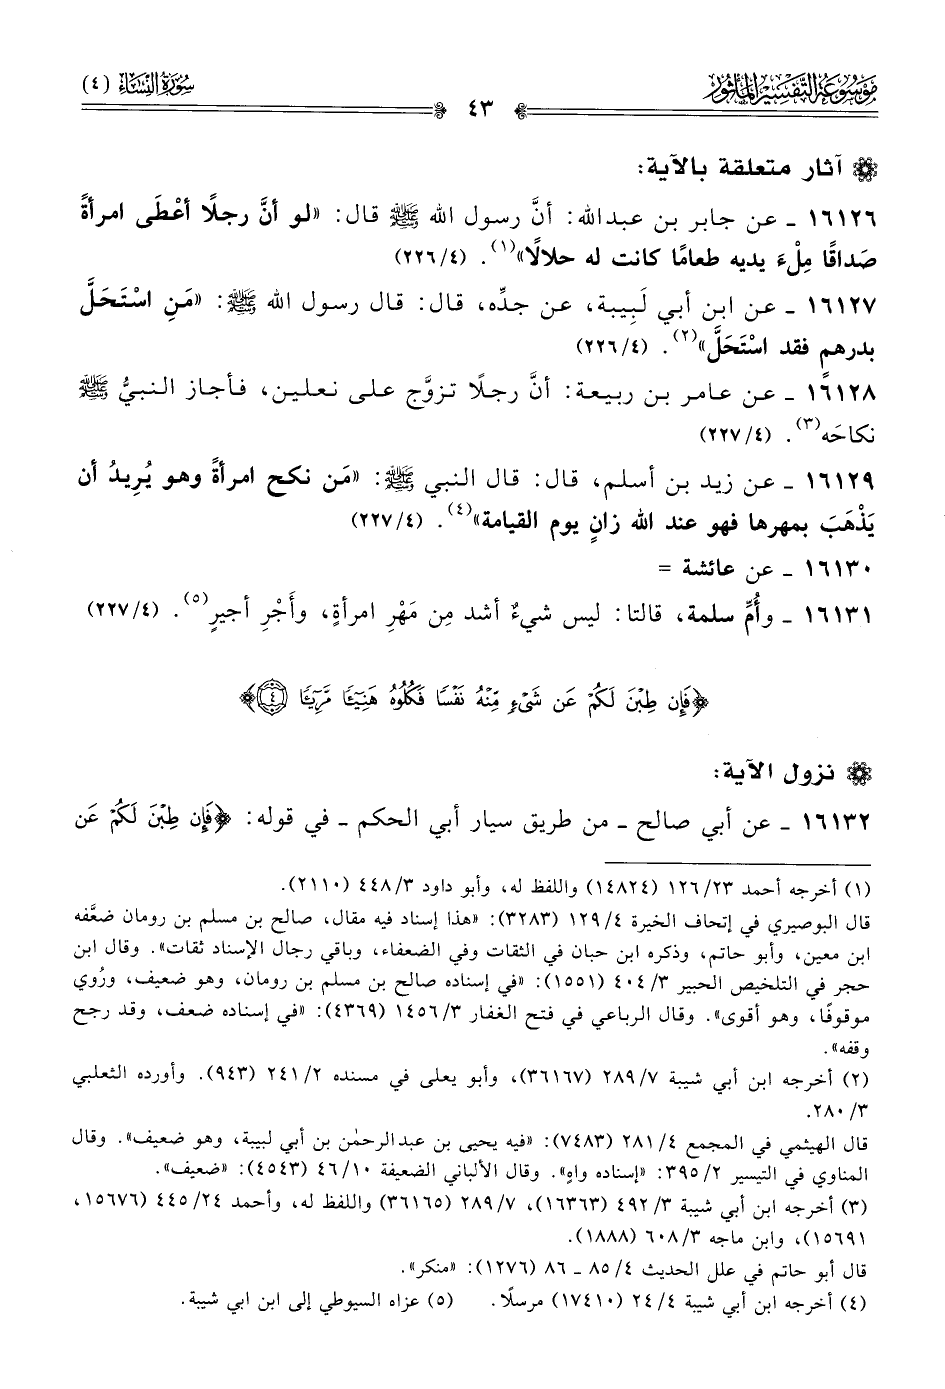 موسوعة التفسير المأثور
٤٣
سورة النساء (٤)
آثار متعلقة بالآية:
١٦١٢٦ ـ عن جابر بن عبدالله: أنَّ رسول الله ﷺ قال: «لو أنَّ رجلًا أعْطَى امرأةً
صَداقًا مِلْءَ يديه طعامًا كانت له حلالًا»(١). (٢٢٦/٤)
١٦١٢٧ ـ عن ابن أبي لَبِيبة، عن جدِّه، قال: قال رسول الله ﷺ: «مَنِ اسْتَحَلَّ
بدرهمٍ فقد اسْتَحَلَّ»(٢). (٢٢٦/٤)
١٦١٢٨ ـ عن عامر بن ربيعة: أنَّ رجلًا تزوَّج على نعلين، فأجاز النبيُّ ﷺ
نكاحَه(٣). (٢٢٧/٤)
١٦١٢٩ ـ عن زيد بن أسلم، قال: قال النبي ﷺ: «مَن نكح امرأةً وهو يُرِيدُ أن
يَذْهَبَ بمهرها فهو عند الله زانٍ يوم القيامة»(٤). (٢٢٧/٤)
١٦١٣٠ ـ عن عائشة =
١٦١٣١ ـ وأُمِّ سلمة، قالتا: ليس شيءٌ أشد مِن مَهْرِ امرأةٍ، وأَجْرِ أجيرٍ(٥). (٢٢٧/٤)
﴿فَإِن طِبْنَ لَكُمْ عَن شَىْءٍ مِّنْهُ نَفْسًا فَكُلُوهُ هَنِيٓـًٔا مَّرِيٓـًٔا ٤﴾
نزول الآية:
١٦١٣٢ ـ عن أبي صالح ـ من طريق سيار أبي الحكم ـ في قوله: ﴿فَإِن طِبْنَ لَكُمْ عَن
(١) أخرجه أحمد ١٢٦/٢٣ (١٤٨٢٤) واللفظ له، وأبو داود ٤٤٨/٣ (٢١١٠).
قال البوصيري في إتحاف الخيرة ١٢٩/٤ (٣٢٨٣): «هذا إسناد فيه مقال، صالح بن مسلم بن رومان ضعَّفه
ابن معين، وأبو حاتم، وذكره ابن حبان في الثقات وفي الضعفاء، وباقي رجال الإسناد ثقات». وقال ابن
حجر في التلخيص الحبير ٤٠٤/٣ (١٥٥١): «في إسناده صالح بن مسلم بن رومان، وهو ضعيف، ورُوي
موقوفًا، وهو أقوى». وقال الرباعي في فتح الغفار ١٤٥٦/٣ (٤٣٦٩): «في إسناده ضعف، وقد رجح
وقفه».
(٢) أخرجه ابن أبي شيبة ٢٨٩/٧ (٣٦١٦٧)، وأبو يعلى في مسنده ٢٤١/٢ (٩٤٣). وأورده الثعلبي
٢٨٠/٣.
قال الهيثمي في المجمع ٢٨١/٤ (٧٤٨٣): «فيه يحيى بن عبدالرحمٰن بن أبي لبيبة، وهو ضعيف». وقال
المناوي في التيسير ٣٩٥/٢: «إسناده واهٍ». وقال الألباني الضعيفة ٤٦/١٠ (٤٥٤٣): «ضعيف».
(٣) أخرجه ابن أبي شيبة ٤٩٢/٣ (١٦٣٦٣)، ٢٨٩/٧ (٣٦١٦٥) واللفظ له، وأحمد ٤٤٥/٢٤ (١٥٦٧٦،
١٥٦٩١)، وابن ماجه ٦٠٨/٣ (١٨٨٨).
قال أبو حاتم في علل الحديث ٨٥/٤ ـ ٨٦ (١٢٧٦): «منكر».
(٤) أخرجه ابن أبي شيبة ٢٤/٤ (١٧٤١٠) مرسلًا. (٥) عزاه السيوطي إلى ابن ابي شيبة.